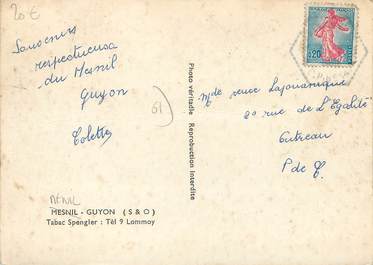 20 €
0,20
Souvenirs
respectueux
du Mesnil
Guyon
Colette
61
Mde veuve
20 rue de L'Egalité
Outreau
P de C.
Photo véritable Reproduction interdite
MÉNIL
MESNIL - GUYON (S & O)
Tabac Spengler : Tél 9 Lommoy